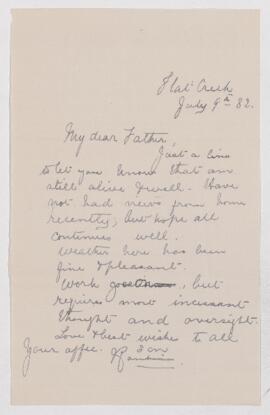 Flat Creek
July 9th 82.
My dear Father,
Just a line
to let you know that am
still alive & well. Have
not had news from home
recently, but hope all
continues well.
Weather here has been
fine & pleasant.
Work, but
requires most incessant
thought and oversight.
Love & best wishes to all
Your affec. Son